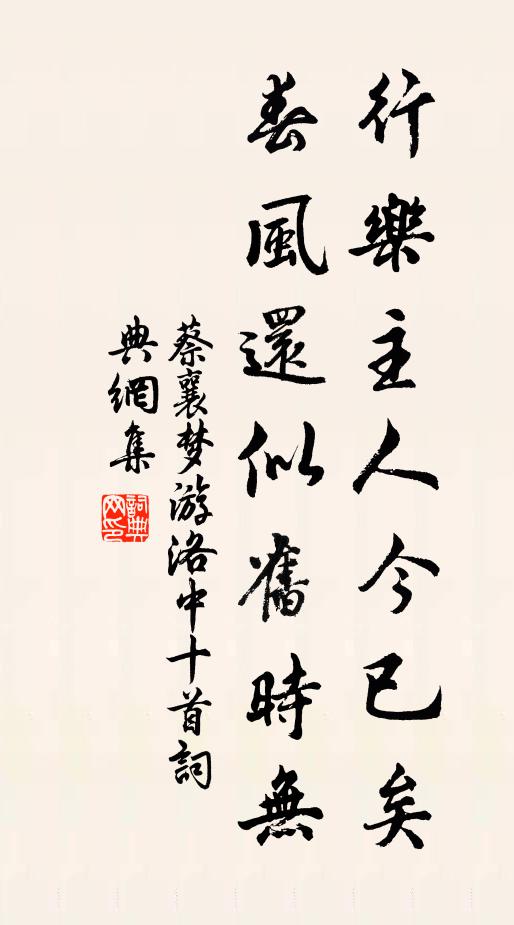 行樂主人今已矣
春風還似舊時無
蔡襄梦游洛中十首詞
典網集
詞典网印